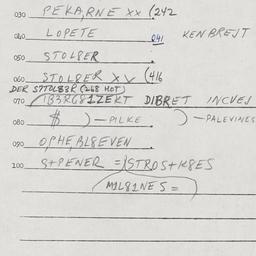 030 PEKA,RNE XX (242
040 LOPETE 241 KENBREJT
050 STOLPER
060 STOLPER XX (416
DER STTOLB3R (268 HOT)
070 1B3RG81ZEKT DIBRET INCVES
080 $ ) — PILKE ) — PALEVINES
090 OPHE,BL8EVEN
100 S+PENER = STROS+K8ES
M1L81NES =